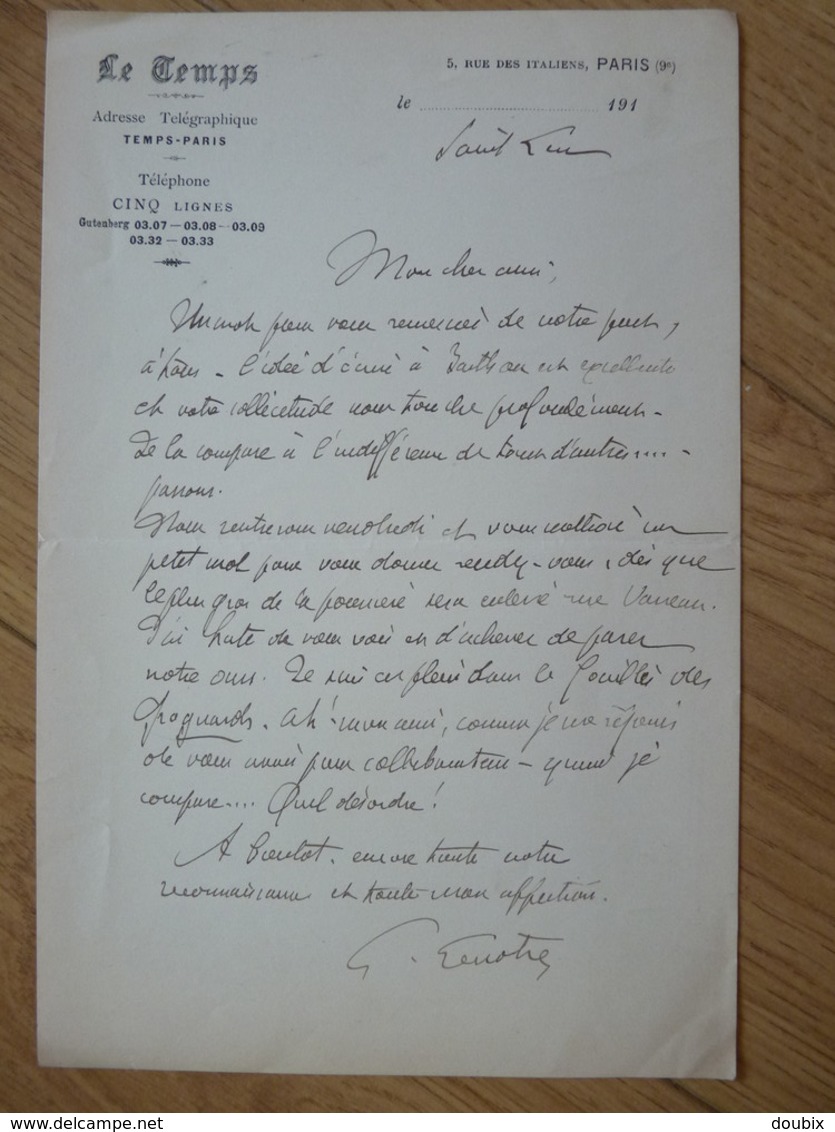 Le Temps
5, RUE DES ITALIENS, PARIS (9e)
Adresse Télégraphique
TEMPS-PARIS
le 191
Téléphone
CINQ LIGNES
Gutenberg 03.07 — 03.08 — 03.09
03.32 — 03.33
Saint Leu
Mon cher ami,
Un mot pour vous remercier de votre
à tous. L'idée d'écrire à Barthou est excellente
et votre sollicitude nous touche profondément.
Je la compare à l'indifférence de tant d'autres....
passons.
Nous rentrerons vendredi et vous mettrai un
petit mot pour vous donner rendez-vous, dès que
le plus gros de la poussière sera enlevé rue Vaneau.
J'ai hâte de vous voir et d'achever de parer
notre ours. Je suis en plein dans le des
Grognards. Ah! mon ami, comme je me réjouis
de vous avoir pour collaborateur — quand je
compare.... Quel désordre!
A bientôt. encore toute notre
reconnaissance et toute mon affection.
G. Lenotre
doubix